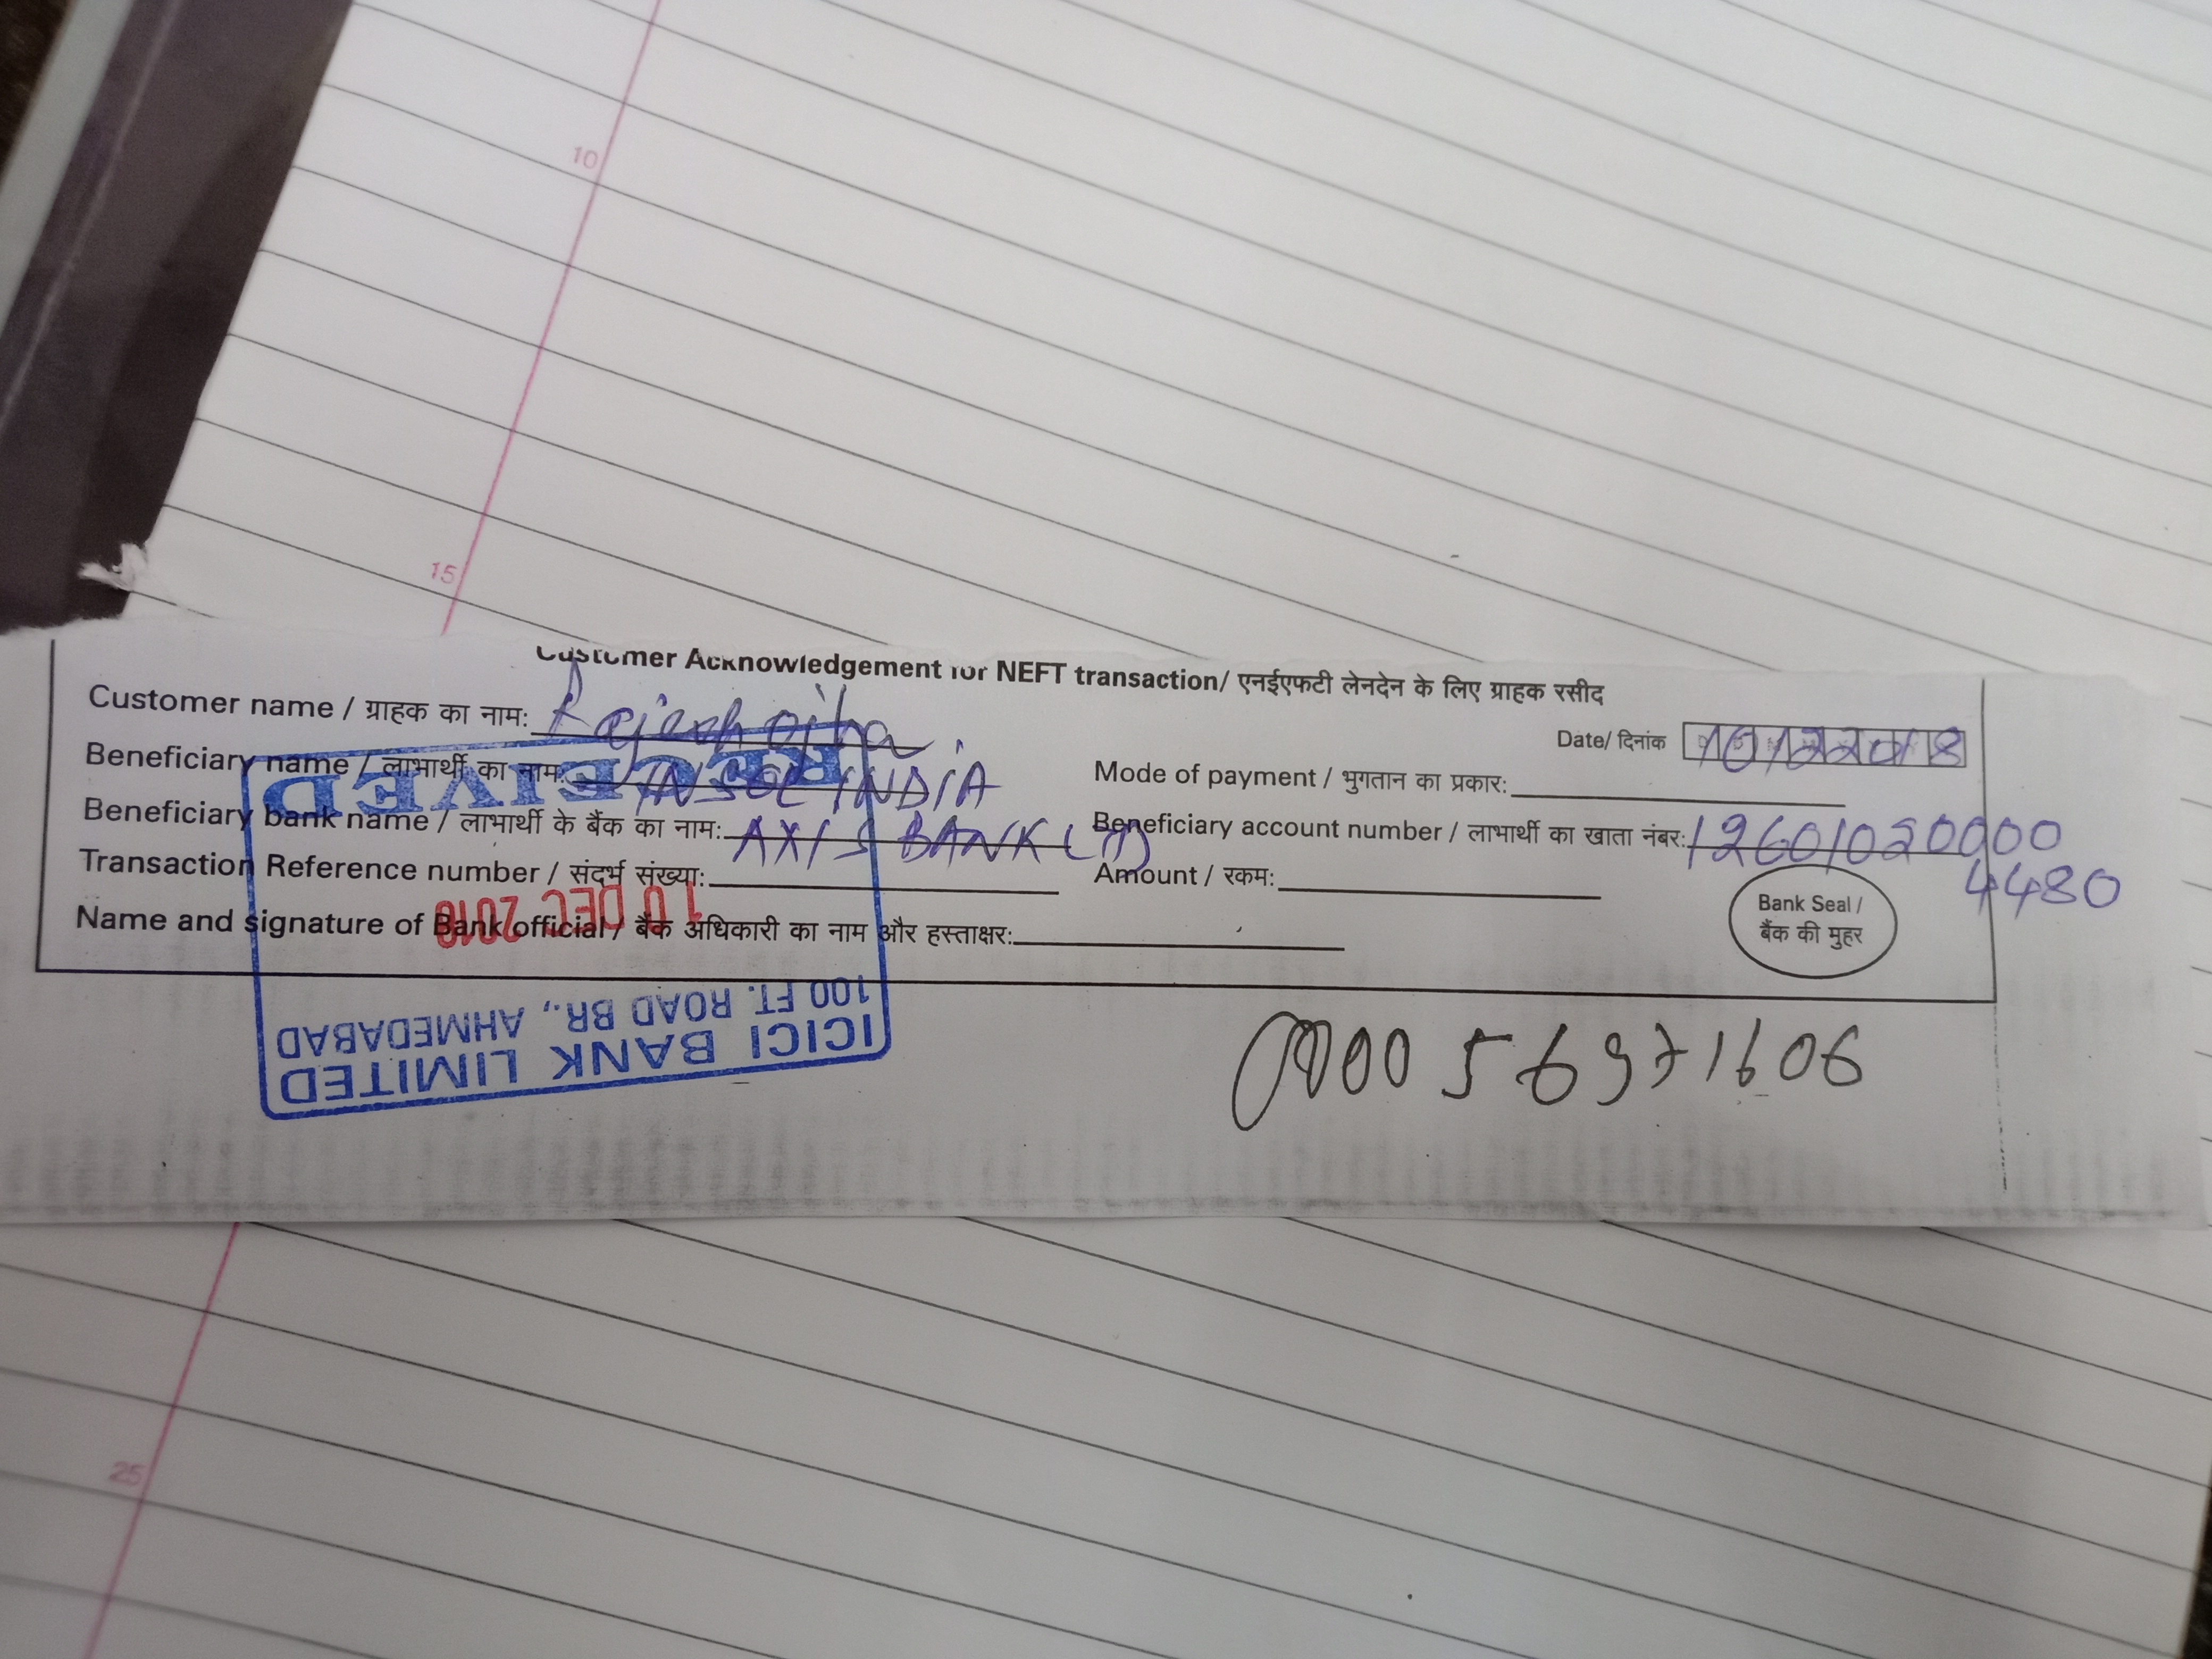 10
15
Customer Acknowledgement for NEFT transaction/ एनईएफटी लेनदेन के लिए ग्राहक रसीद
Customer name / ग्राहक का नाम: Rajesh ojha
Date/ दिनांक 10122018
Beneficiary name / लाभार्थी का नाम: INSOL INDIA
Mode of payment / भुगतान का प्रकार:
Beneficiary bank name / लाभार्थी के बैंक का नाम: AXIS BANK LTD
Beneficiary account number / लाभार्थी का खाता नंबर: 12601020000
4480
Transaction Reference number / संदर्भ संख्या:
Amount / रकम:
Name and signature of Bank official / बैंक अधिकारी का नाम और हस्ताक्षर:
Bank Seal /
बैंक की मुहर
ICICI BANK LIMITED
100 FT. ROAD BR., AHMEDABAD
10 DEC 2018
RECEIVED
000 56971606
25